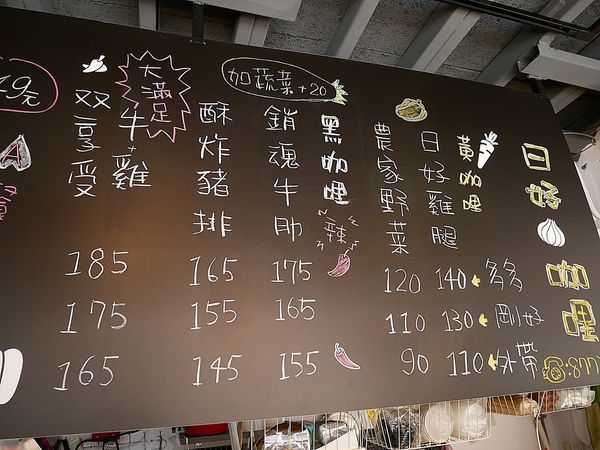 日好咖哩
☎:877
黃咖哩
日好雞腿
農家野菜
黑咖哩
辣
銷魂牛肋
酥炸豬排
如蔬菜+20
大滿足
牛+雞
雙享受
49元
多多 140 120 175 165 185
剛好 130 110 165 155 175
外帶 110 90 155 145 165